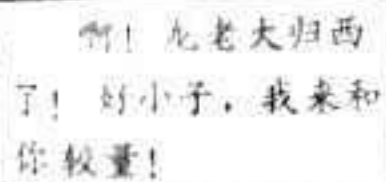 啊！龙老大归西
了！好小子，我来和
你较量！